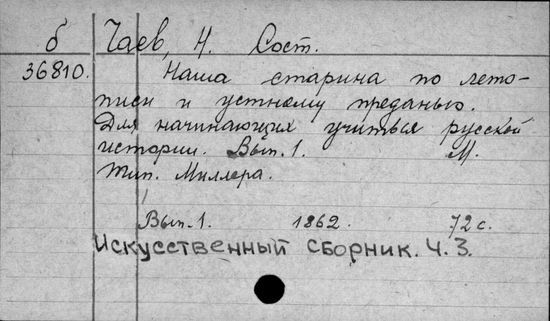 б Чаев, Н. Сост.
36810. Наша старина по лето-
писи и устному преданью.
Для начинающих учиться русской
истории. Вып. 1. М.
Тип. Миллера.
Вып. 1. 1862. 72 с.
Искусственный сборник. Ч. 3.